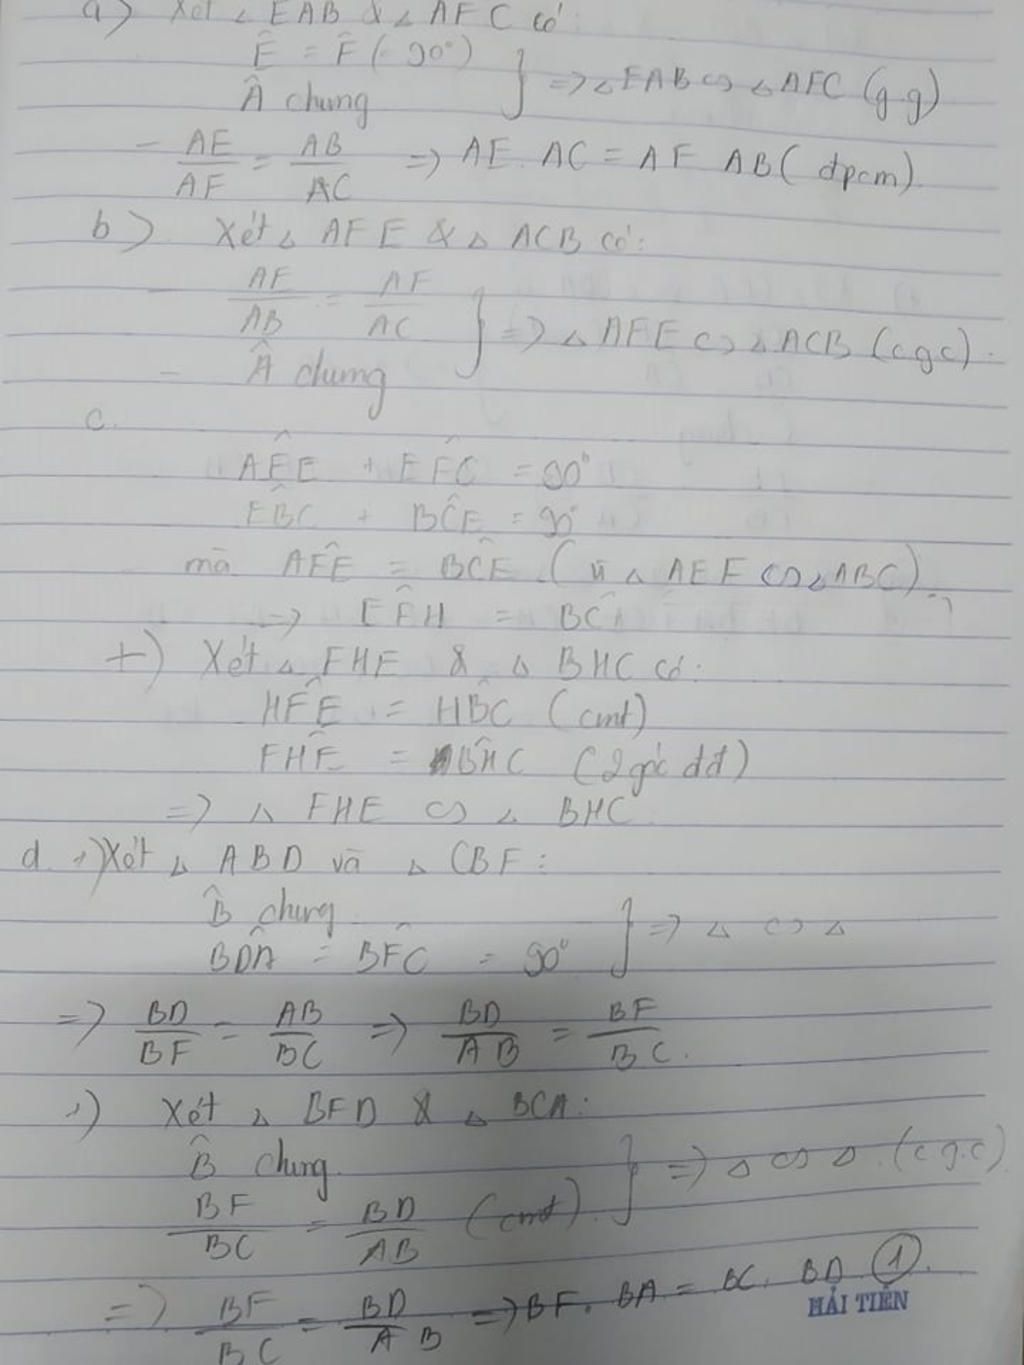 a) Xét △ EAB & △ AFC có:
Ê = F̂ (= 90°)
Â chung } => △EAB ∽ △AFC (g.g)
- AE/AF = AB/AC => AE. AC = AF AB (đpcm)
b) Xét △ AFE & △ ACB có:
- AE/AB = AF/AC
- Â chung } => △AFE ∽ △ACB (cgc).
c.
AF̂E + EF̂C = 90°
EB̂C + BĈE = 90°
mà AF̂E = BĈE (vì △AEF ∽ △ABC)
=> EF̂H = BC
+) Xét △ FHE & △ BHC có:
HF̂E = HB̂C (cmt)
FĤE = BĤC (2 góc đđ)
=> △ FHE ∽ △ BHC
d. +) Xét △ ABD và △ CBF:
B̂ chung
BD̂A = BF̂C = 90° } => △ ∽ △
=> BD/BF = AB/BC => BD/AB = BF/BC.
+) Xét △ BFD & △ BCA:
B̂ chung
BF/BC = BD/AB (cmt) } => △ ∽ △ (c.g.c)
=> BF/BC = BD/AB => BF. BA = BC. BD (1).
HẢI TIẾN